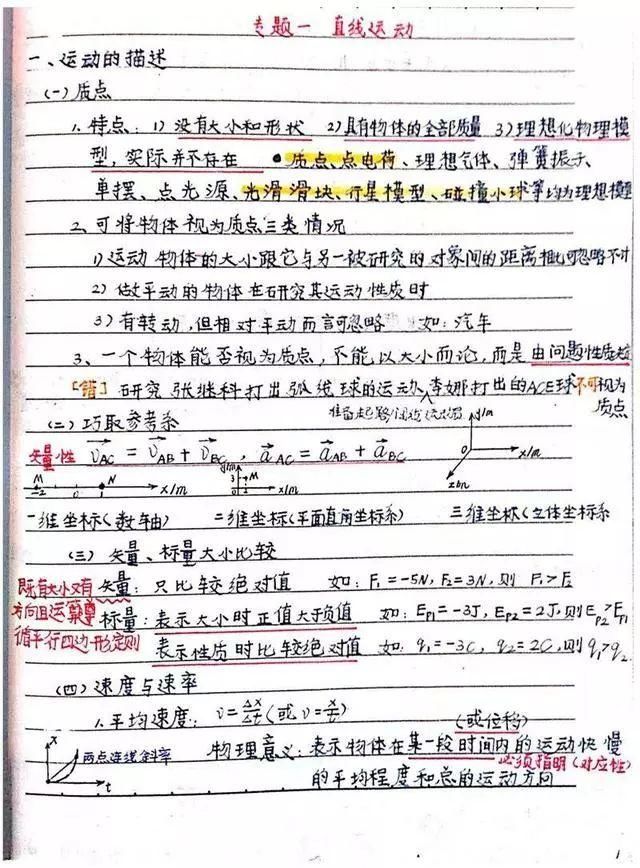 专题一 直线运动
一、运动的描述
(一)质点
1. 特点: 1) 没有大小和形状 2)具有物体的全部质量 3)理想化物理模
型, 实际并不存在 ●质点、点电荷、理想气体、弹簧振子、
单摆、点光源、光滑滑块、行星模型、碰撞小球等均为理想模型
2、可将物体视为质点三类情况
1)运动物体的大小跟它与另一被研究的对象间的距离相比可忽略不计
2) 做平动的物体在研究其运动性质时
3)有转动,但相对平动而言可忽略 如:汽车
3、一个物体能否视为质点,不能以大小而论,而是由问题性质决定
[错] 研究张继科打出弧线球的运动、李娜打出的ACE球不可视为
质点
(二)巧取参考系
矢量性 v⃗AC = v⃗AB + v⃗BC, a⃗AC = a⃗AB + a⃗BC
M -2 0 1 N x/m
y/m 3 M 0 2 x/m
y/m x/m 0
一维坐标(数轴) 二维坐标(平面直角坐标系) 三维坐标(立体坐标系
(三) 矢量、标量大小比较
既有大小又有 矢量: 只比较绝对值 如: F₁=-5N, F₂=3N, 则 F₁>F₂
方向且运算遵 标量: 表示大小时正值大于负值 如: EP1=-3J, EP2=2J, 则EP2>EP1
循平行四边形定则 表示性质时比较绝对值 如: q₁=-3C, q₂=2C, 则 q₁>q₂
(四)速度与速率
1. 平均速度: v=Δx/Δt (或v=x/t) (或位移)
x 两点连线斜率 t 物理意义: 表示物体在某一段时间内的运动快慢
必须指明(对应性)
的平均程度和总的运动方向
1